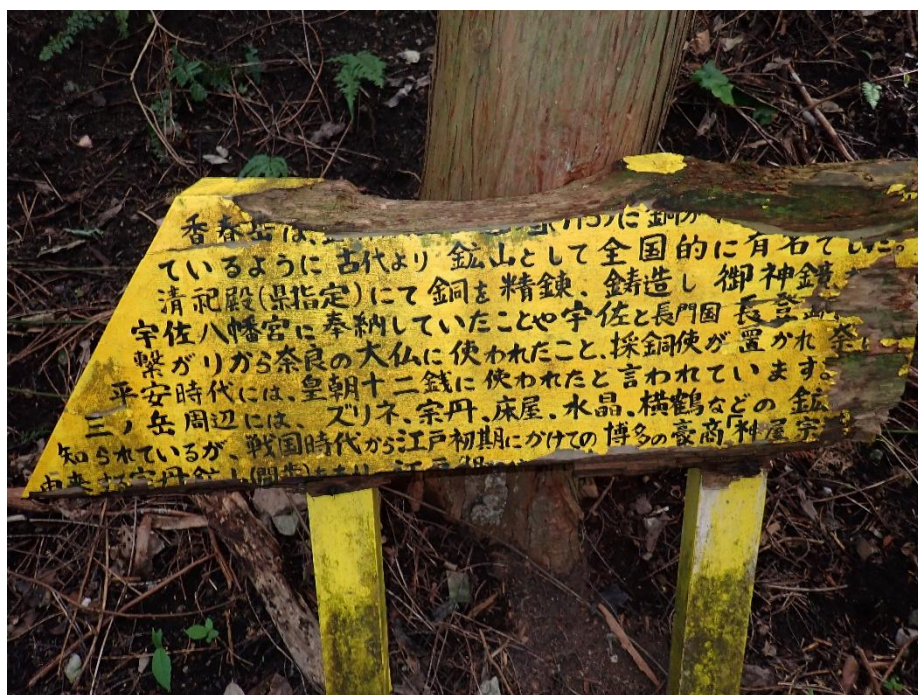 香春岳は、に銅が
ているように古代より鉱山として全国的に有名でした。
清祀殿(県指定)にて銅を精錬、鋳造し御神鏡を
宇佐八幡宮に奉納していたことや宇佐と長門国長登
繋がりから奈良の大仏に使われたこと、採銅使が置かれ
平安時代には、皇朝十二銭に使われたと言われています。
三ノ岳周辺には、ズリネ、宗丹、床屋、水晶、横鶴などの鉱
知られているが、戦国時代から江戸初期にかけての博多の豪商「神屋宗